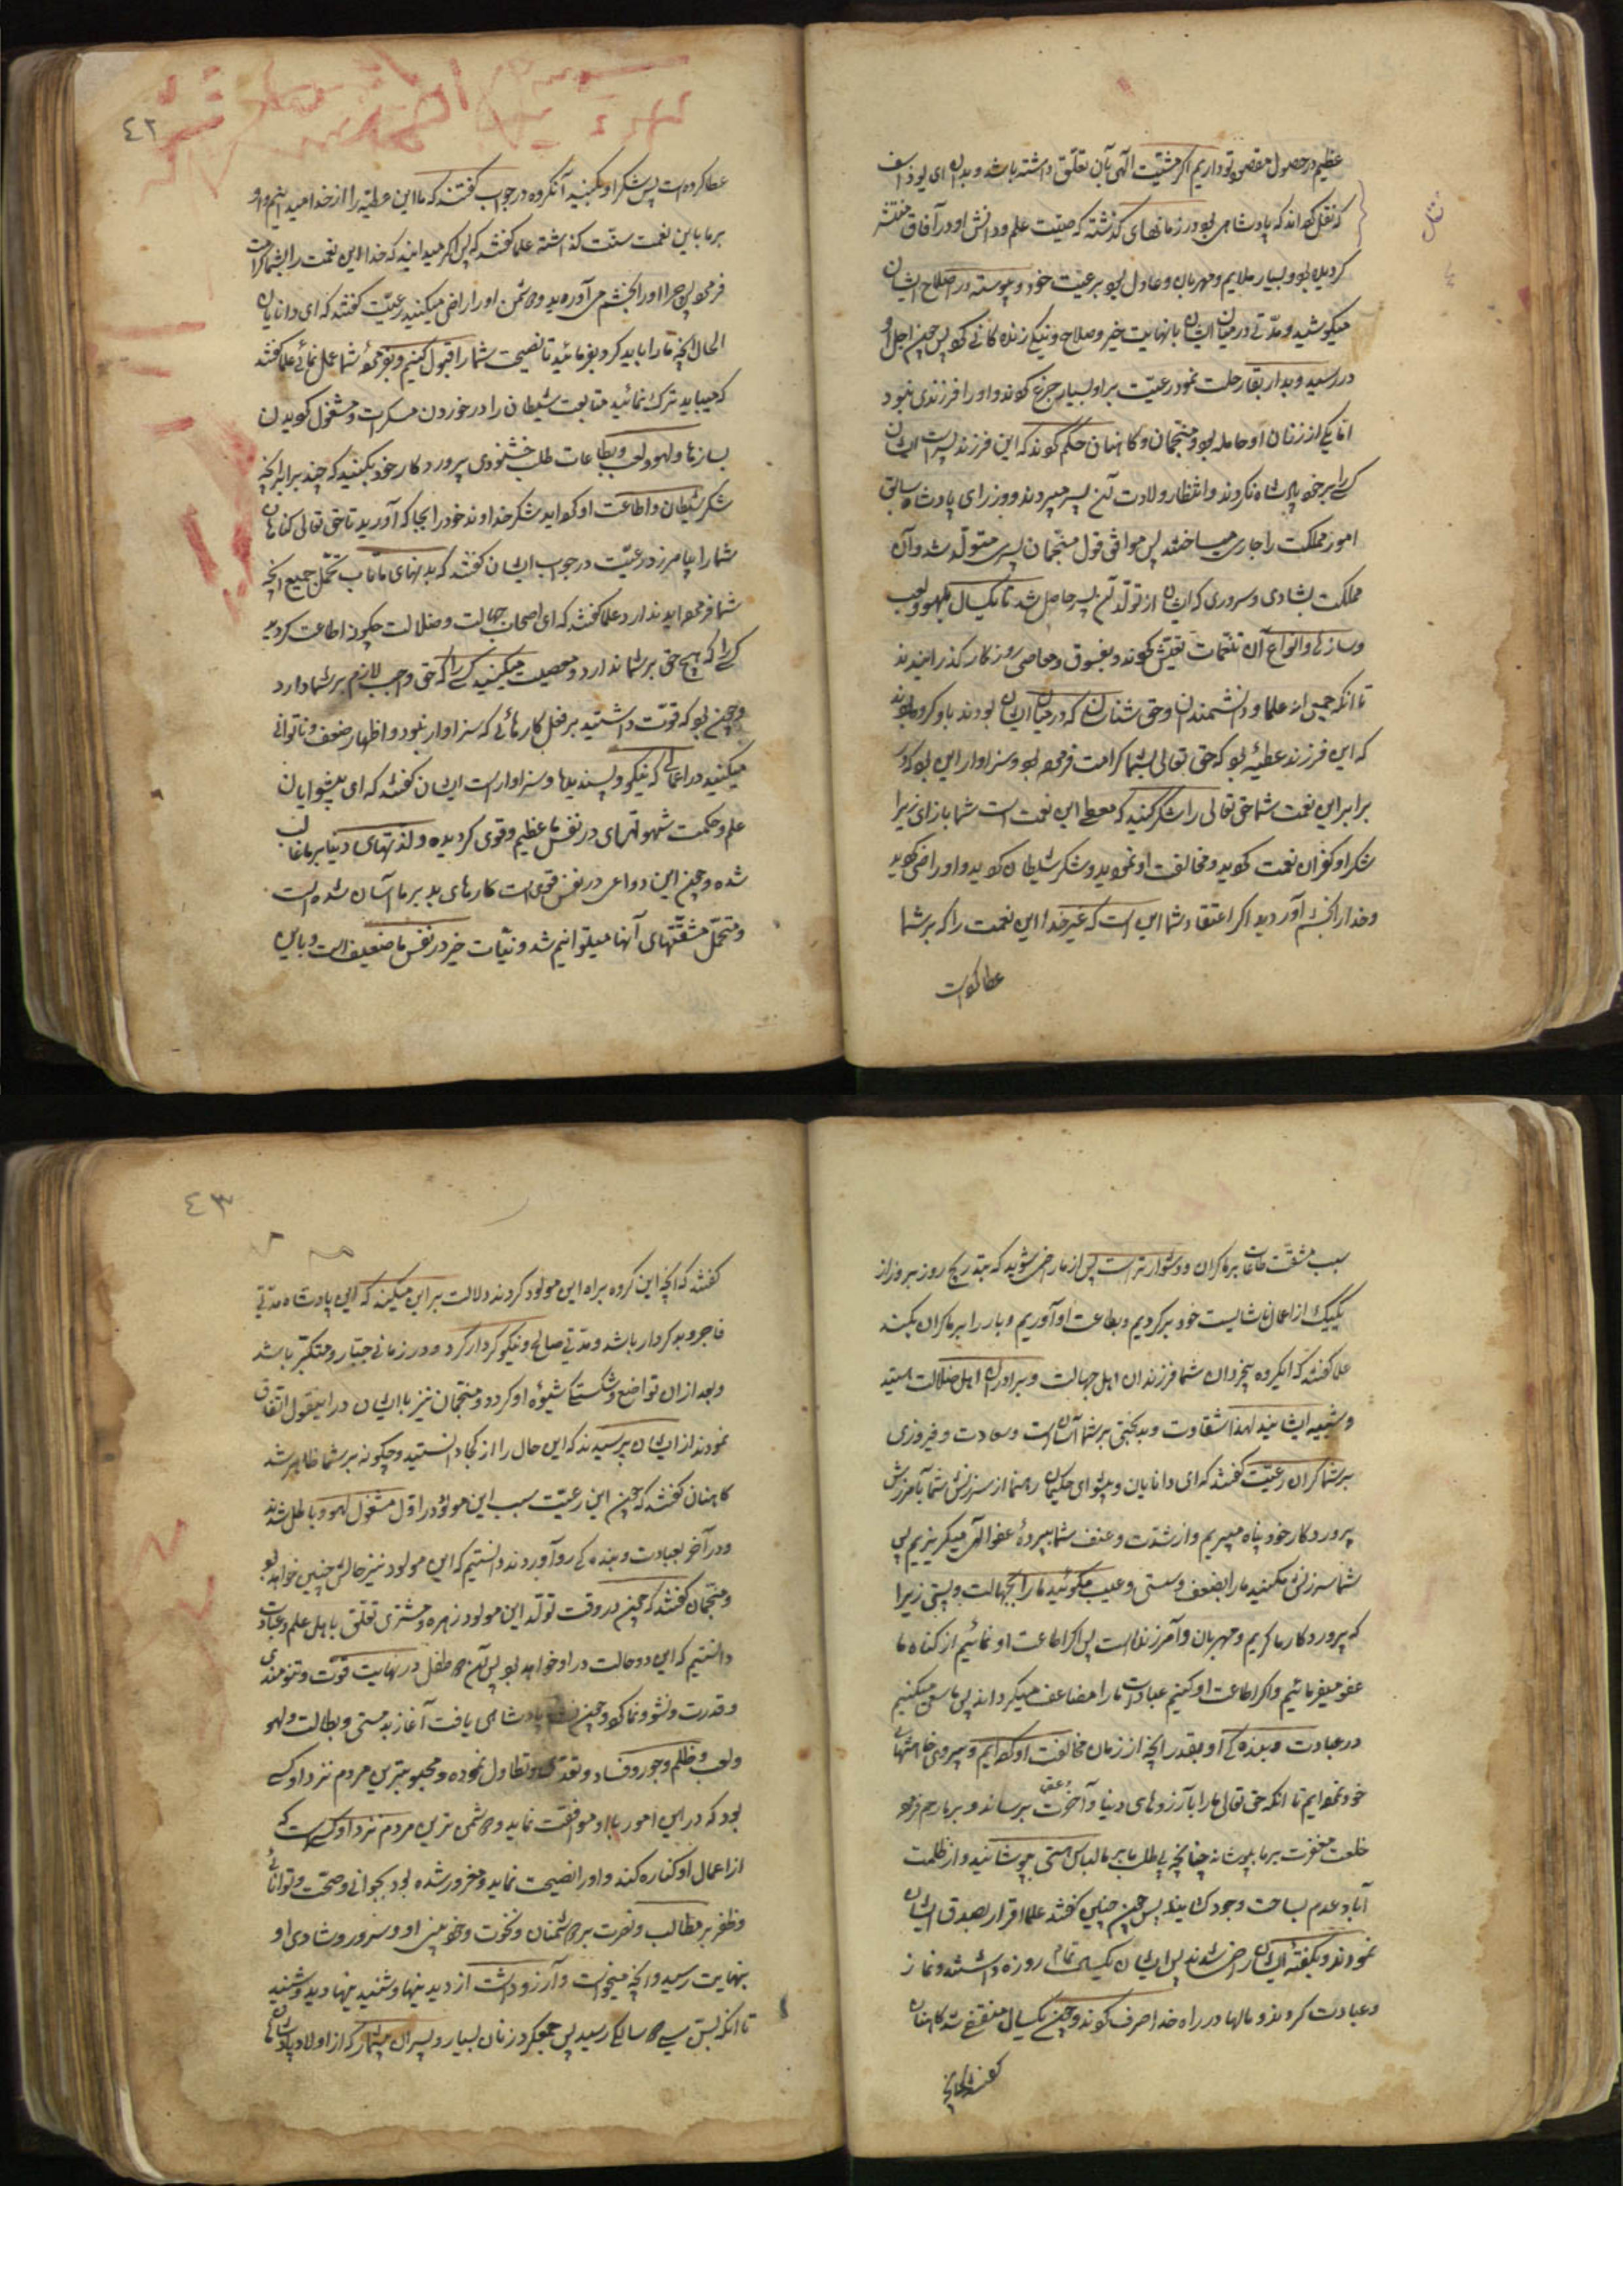 عظیم در حصول مقصود تو داریم اگر مشیّت الهی بآن تعلّق داشته باشد و بدان ای یوذاسف
که نقل کرده‌اند که پادشاهی بود در زمانهای گذشته که صیت علم و دانش او در آفاق منتشر
مثل
گردیده بود و بسیار ملایم و مهربان و عادل بود بر رعیّت خود و پیوسته در اصلاح ایشان
میکوشید و مدّتی در میان ایشان با نهایت خیر و صلاح و نیکی زندگانی کرد پس چون اجل او
در رسید و بدار بقا رحلت نمود رعیّت بر او بسیار جزع کردند و او را فرزندی نبود
امّا یکی از زنان او حامله بود و منجّمان و کاهنان حکم کردند که این فرزند پسر است ایشان
کسی را بر خود پادشاه نکردند و انتظار ولادت آن پسر میبردند و وزرای پادشاه سابق
امور مملکت را جاری میساختند پس موافق قول منجّمان پسری متولّد شد و آن
مملکت بشادی و سروری که ایشان را از تولّد آن پسر حاصل شد تا یکسال بلهو و لعب
و سازها و انواع آن تنعّمات تعیّش کردند و بفسوق و معاصی روزگار گذرانیدند
تا آنکه جمعی از علما و دانشمندان و حق شناسان که در میان ایشان بودند باو گروه گفتند
که این فرزند عطیّه بود که حق تعالی بشما کرامت فرموده بود و سزاوار این بود که در
برابر این نعمت شما حق تعالی را شکر کنید که معطی این نعمت است شما بازای زیرا
شکر او کفران نعمت کردید و مخالفت او نمودید و شکر شیطان کردید و او را راضی کردید
و خدا را بخشم آوردید اگر اعتقاد شما این است که غیر خدا این نعمت را که بر شما
عطا کرده است
٤٢
عطا کرده است پس شکر او بکنید آن گروه در جواب گفتند که ما این عطیّه را از خدا میدانیم و او
بر ما باین نعمت منّت گذاشته علما گفتند که پس اگر میدانید که خدا این نعمت را بشما کرامت
فرموده پس چرا او را بخشم می‌آورید و دشمن او را راضی میکنید رعیّت گفتند که ای دانایان
الحال آنچه ما را باید کرد بفرمائید تا نصیحت شما را قبول کنیم و بفرموده شما عمل نمائیم علما گفتند
که میباید ترک نمائید متابعت شیطان را در خوردن مسکرات و مشغول گردیدن
بسازها و لهو و لعب و بطاعات طلب خشنودی پروردگار خود بکنید که چند برابر آنچه
شکر شیطان و اطاعت او کرده‌اید شکر خداوند خود را بجا آورید تا حق تعالی گناهان
شما را بیامرزد رعیّت در جواب ایشان گفتند که بدنهای ما تاب تحمّل جمیع آنچه
شما فرموده‌اید ندارد علما گفتند که ای اصحاب جهالت و ضلالت چگونه اطاعت کردید
کسی را که هیچ حق بر شما ندارد و معصیت میکنید کسی را که حق واجب لازم بر شما دارد
و چون بود که قوّت داشتید بر فعل کارهائی که سزاوار نبود و اظهار ضعف و ناتوانی
میکنید در اعمالی که نیکو و پسندیدها و سزاوار است ایشان گفتند که ای پیشوایان
علم و حکمت شهوتهای در نفس ما عظیم و قوی گردیده و لذتهای دنیا بر ما غالب
شده و چون این دواعی در نفس قوی است کارهای بد بر ما آسان شده است
و متحمّل مشقّتهای آنها میتوانیم شد و نیّات خیر در نفس ما ضعیف است و باین
سبب مشقّت طاعات بر ما گران و دشوارتر است پس از ما راضی شوید که بتدریج روز بروز از
یکیک از اعمال ناشایست خود برگردیم و بطاعت او آوریم و بار را بر ما گران نکنید
علما گفتند که ای گروه بیخردان شما فرزندان اهل جهالت و برادران اهل ضلالت هستید
و شبیه ایشانید لهذا شقاوت و بدبختی بر شما آسان است و سعادت و فیروزی
بر شما گران رعیّت گفتند که ای دانایان و پیشوای حکیمان رهنما از سرزنش شما بآمرزش
پروردگار خود پناه میبریم و از شدّت و عنف شما بپرده عفو الهی میگریزیم پس
شما سرزنش مکنید ما را بضعف و سستی و عیب مگوئید ما را بجهالت و پستی زیرا
که پروردگار ما کریم و مهربان و آمرزنده است پس اگر اطاعت او نمائیم از گناه ما
عفو میفرمائیم و اگر اطاعت او کنیم عبادات ما را مضاعف میگرداند پس ما سعی میکنیم
در عبادت و بندگی او بقدر آنچه از زمان مخالفت او کرده‌ایم و پیروی خواهشهای
خود نموده‌ایم تا آنکه حق تعالی ما را بآرزوهای دنیا و آخرت برساند و بر ما رحم فرموده
خلعت مغفرت بر ما بپوشاند چنانچه بی طلب ما بر ما لباس هستی پوشانید و از ظلمت
آباد عدم بساحت وجود کشانید پس چون چنین گفتند علما اقرار بصدق ایشان
نمودند و بگفته ایشان راضی شدند پس ایشان یکسال تمام روزه داشتند و نماز
و عبادت کردند و مالها در راه خدا صرف کردند و چون یکسال منقضی شد کاهنان
گفتند که آنچه
٤٣
گفتند که آنچه این گروه برای این مولود کردند دلالت بر این میکند که این پادشاه مدّتی
فاجر و بدکردار باشد و مدّتی صالح و نیکو کردار گردد و در زمانی جبّار و متکبّر باشد
و بعد از آن تواضع و شکستگی شیوه او گردد و منجّمان نیز با ایشان در اینقول اتّفاق
نمودند از ایشان پرسیدند که این حال را از کجا دانستید و چگونه بر شما ظاهر شد
کاهنان گفتند که چون این رعیّت سبب این مولود در اوّل مشغول لهو و باطل شدند
و در آخر بعبادت و بندگی رو آوردند دانستیم که این مولود نیز حالش چنین خواهد بود
و منجّمان گفتند که چون در وقت تولّد این مولود زهره و مشتری تعلّق باهل علم و عبادت
دانستیم که این دو حالت در او خواهد بود پس آن طفل در نهایت قوّت و تنومندی
و قدرت و نشو و نما کرد و چون پادشاهی یافت آغاز بدمستی و بطالت و لهو
و لعب و ظلم و جور و فساد و تعدّی و تطاول نموده و محبوبترین مردم نزد او کسی
بود که در این امور با او موافقت نماید و دشمن ترین مردم نزد او کسی است که
از اعمال او کناره کند و او را نصیحت نماید و مغرور شده بود بجوانی و صحّت و توانائی
و ظفر بر مطالب و نصرت بر دشمنان و نخوت و خودبینی او و سرور و شادی او
بنهایت رسید و آنچه میخواست و آرزو داشت از دیدنیها و شنیدنیها دید و شنید
تا آنکه بسنّ سی و دو سالگی رسید پس جمع کرد زنان بسیار و پسران بیشمار که از اولاد پادشاهان